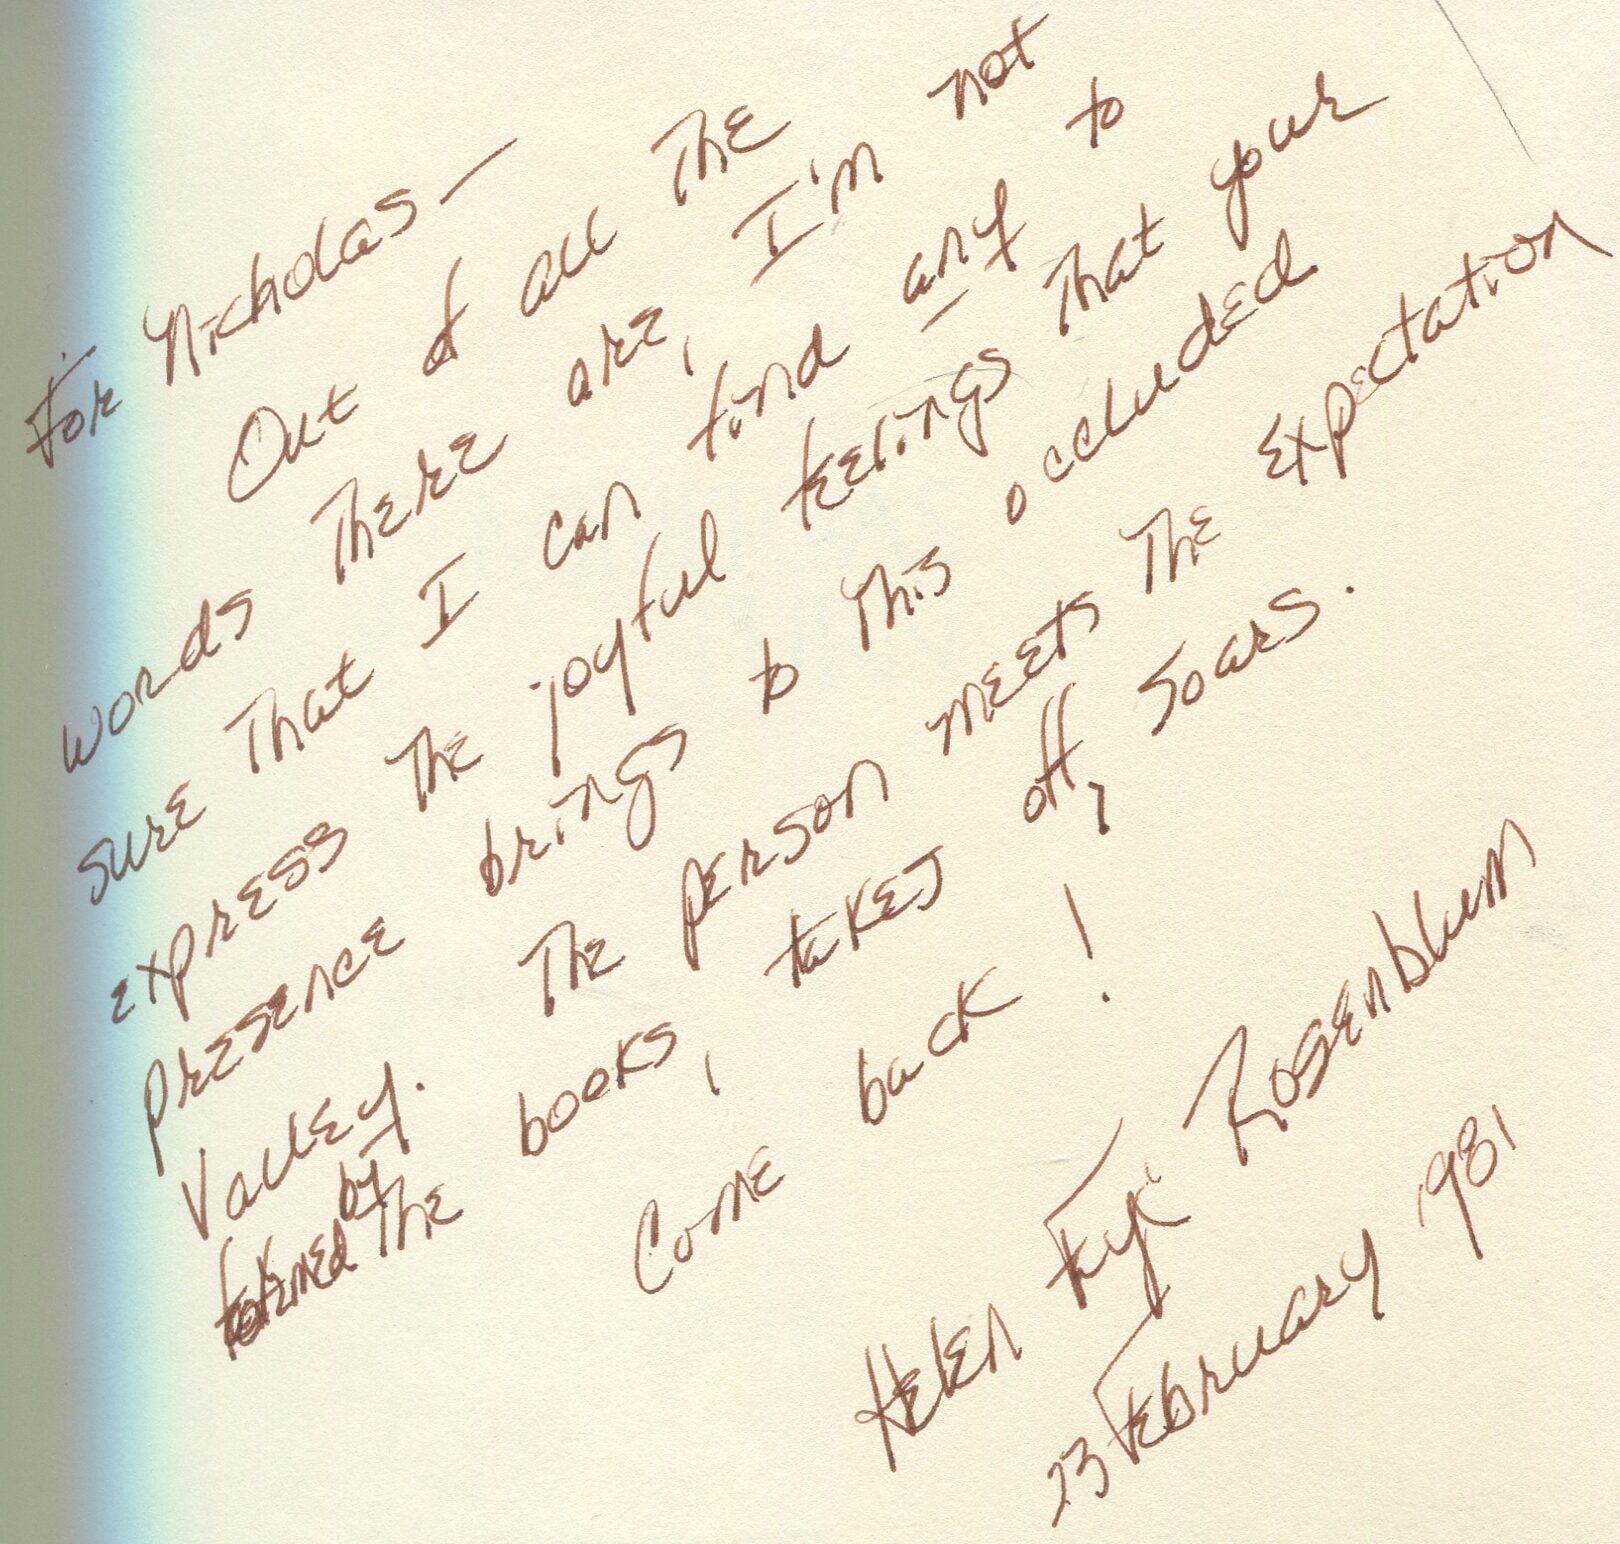 For Nicholas—
Out of all the
words there are, I'm not
sure that I can find any to
express the joyful feelings that your
presence brings to this occluded
Valley. The person meets the expectation
formed by the books, takes off, soars.
Come back!
Helen Faye Rosenblum
23 February 1981